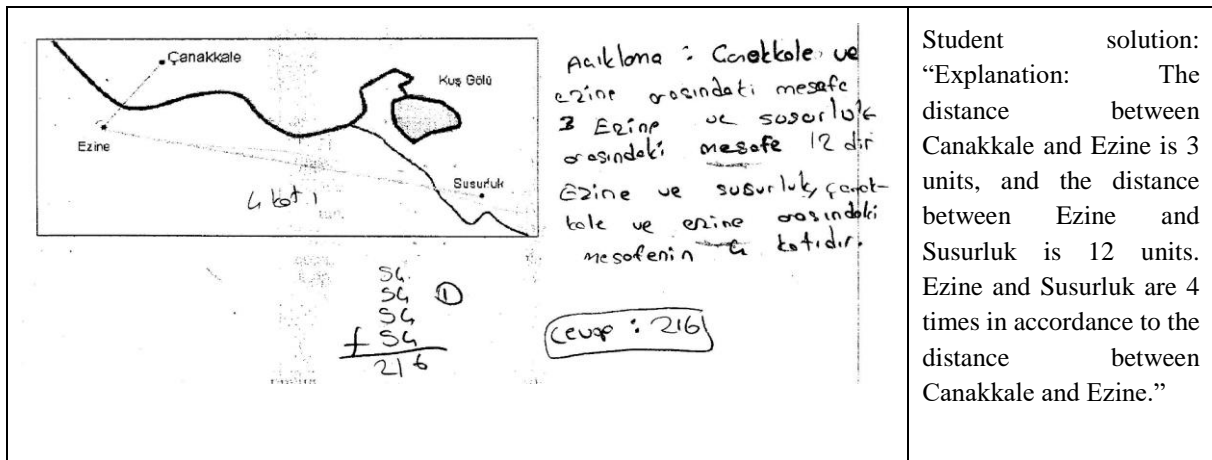 Çanakkale
Kuş Gölü
Ezine
Susurluk
4 kat ı
Açıklama : Canakkale ve
ezine arasındaki mesafe
3 Ezine ve susurluk
arasındaki mesafe 12 dir
Ezine ve susurluk, çanak-
kale ve ezine arasındaki
mesafenin 4 katıdır.
54
54 ①
54
+ 54
216
Cevap : 216
Student solution:
“Explanation: The
distance between
Canakkale and Ezine is 3
units, and the distance
between Ezine and
Susurluk is 12 units.
Ezine and Susurluk are 4
times in accordance to the
distance between
Canakkale and Ezine.”